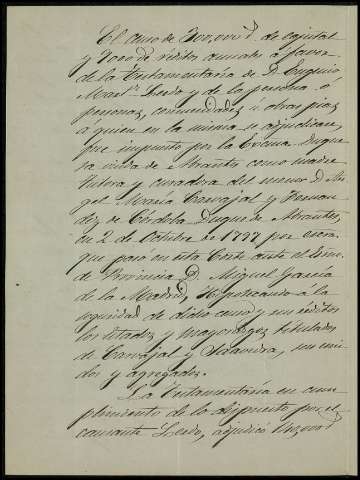 El censo de 300,000 rs de capital
y 9000 de réditos anuales á favor
de la Testamentaría de D. Eugenio
Mart.z Lerdo y de la persona o
personas, comunidades ú obras pias
á quien en la misma se adjudicare,
fue impuesto por la Excma. Duque-
sa viuda de Abrantes como madre
tutora y curadora del menor D. An-
gel María Carvajal y Fernan-
dez de Córdoba Duque de Abrantes,
en 2 de Octubre de 1797 por escra
que pasó en esta Corte ante el Esno
de Provincia D. Miguel García
de la Madrid, Hipotecando á la
seguridad de dicho censo y sus réditos
los Estados y mayorazgos titulados
de Carvajal y sus uni-
dos y agregados.
La Testamentaría en cum-
plimiento de lo dispuesto por el
causante Lerdo, adjudicó